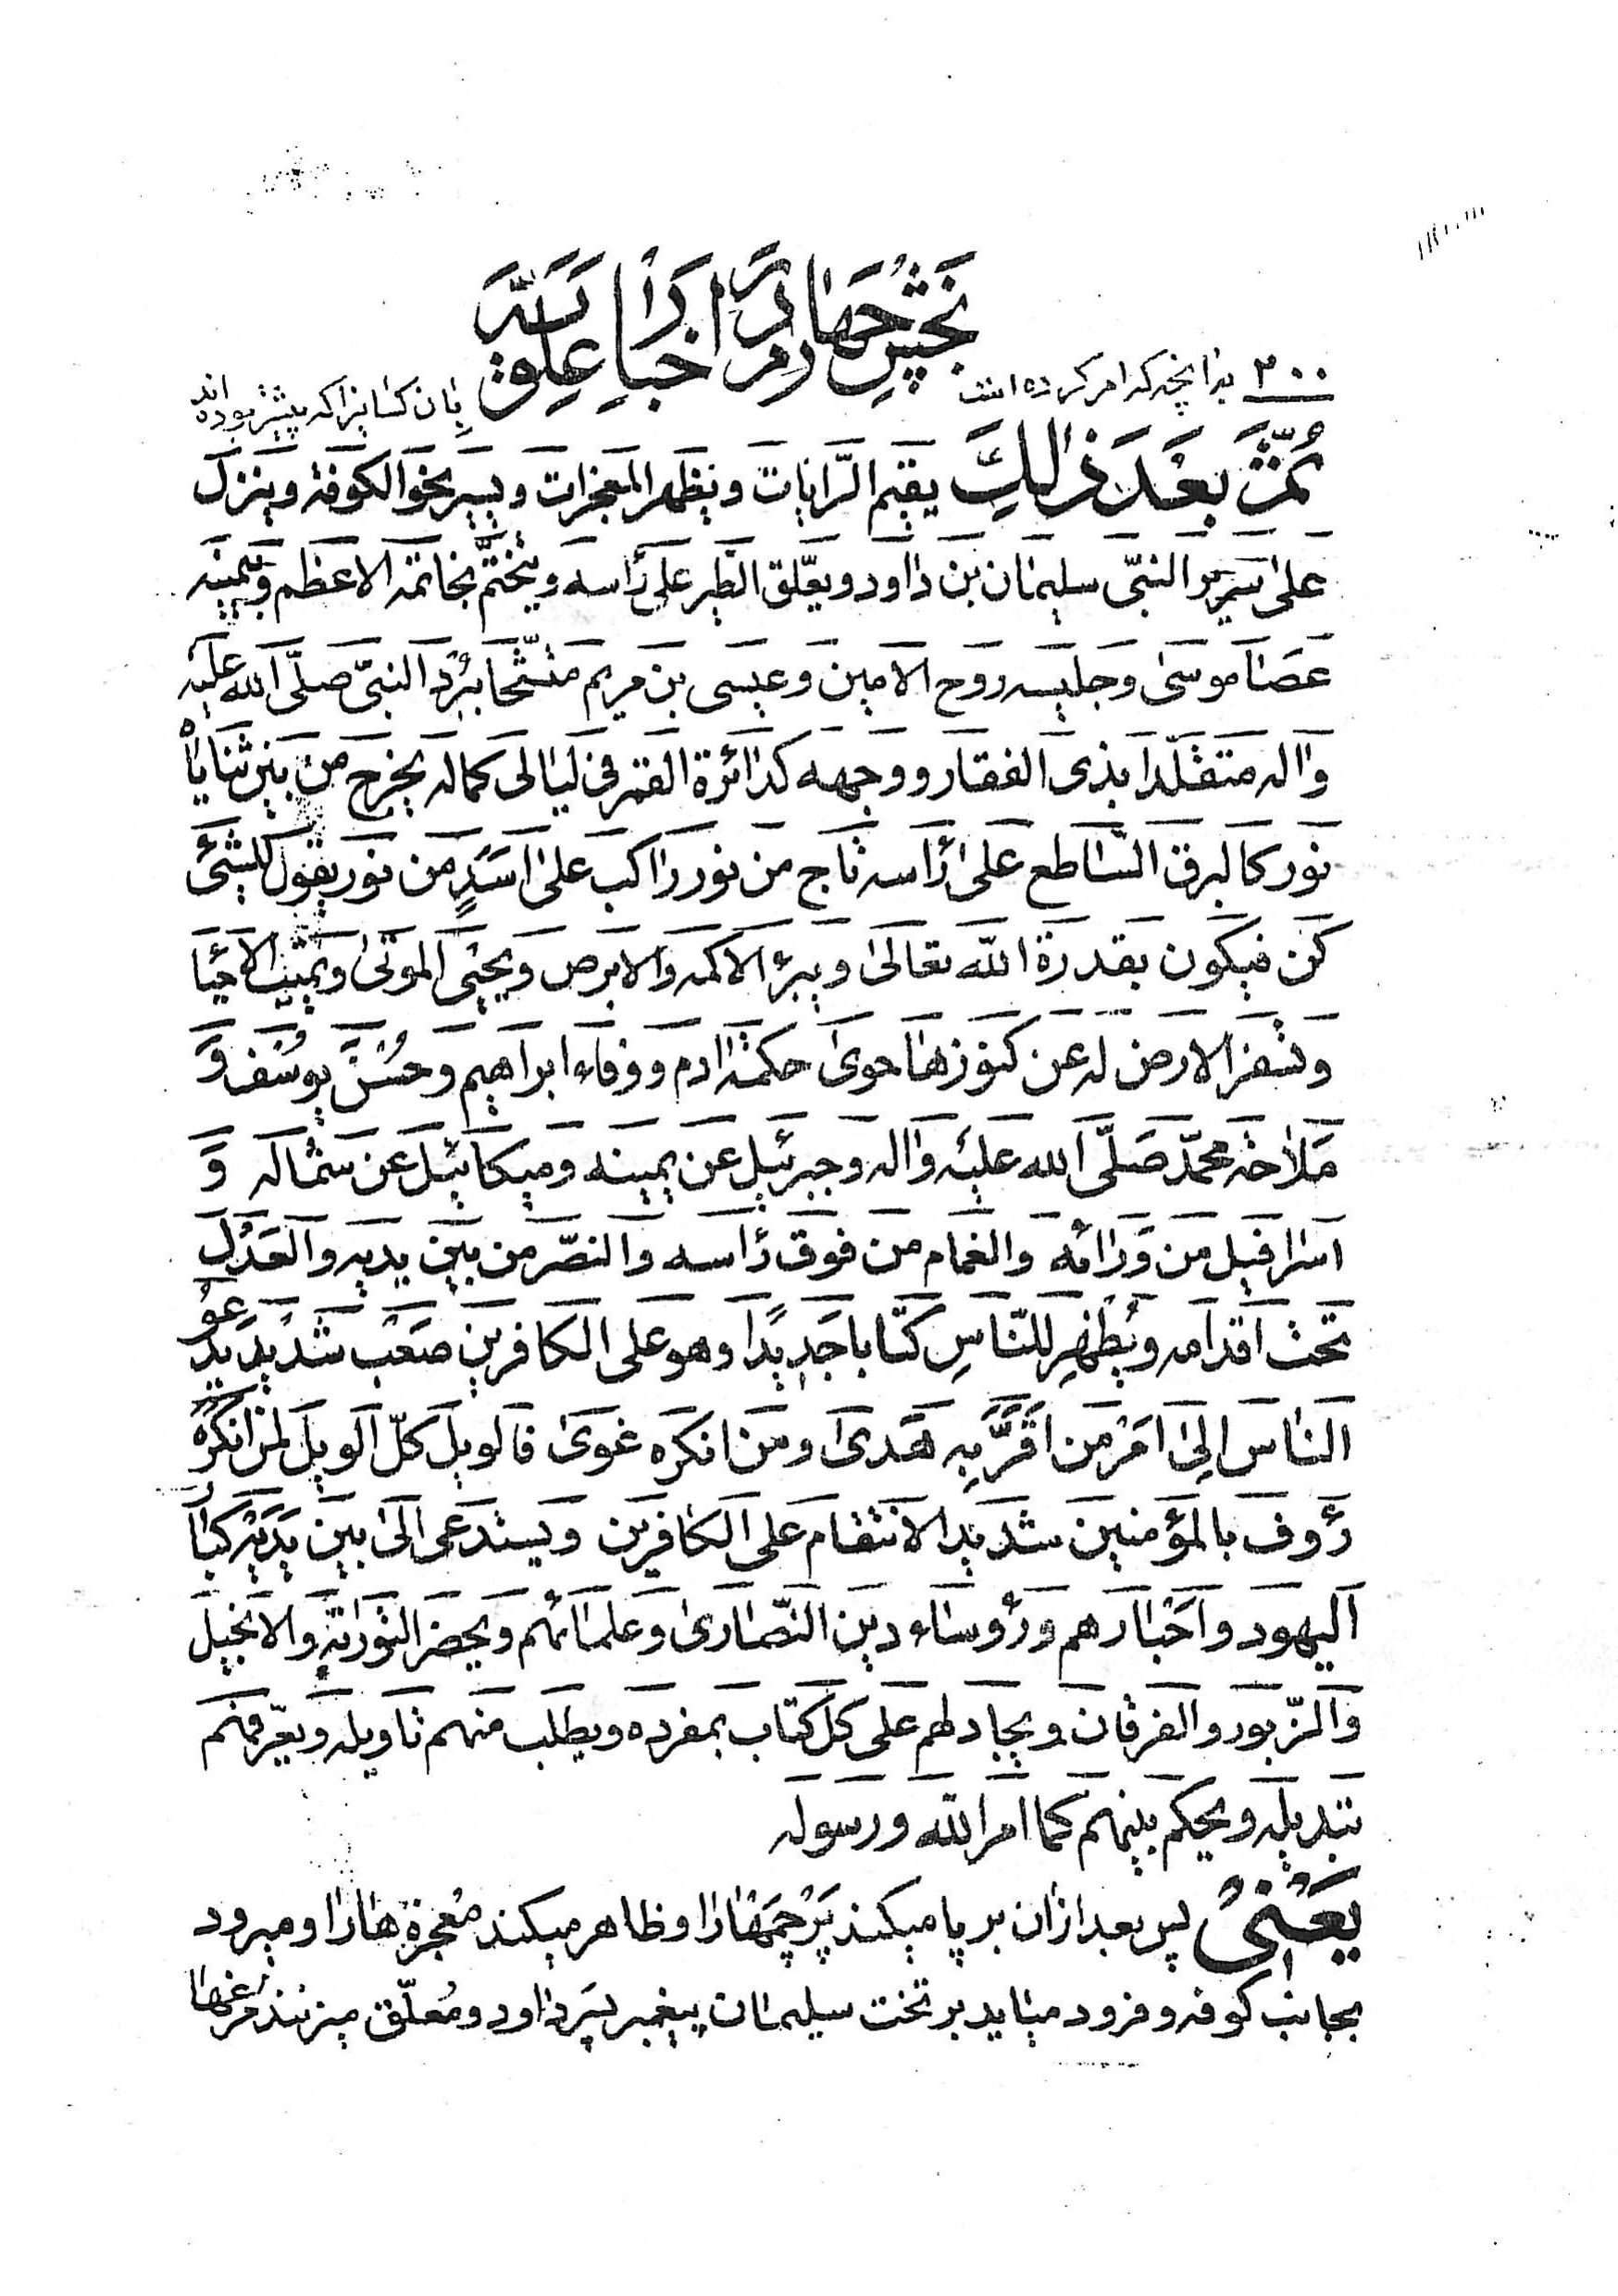 بخش چهارم اخبار علویه
۲۰۰ بدانچه که امر کرده است
بآن کسانیرا که پیشتر بوده اند
ثمّ بعد ذالک یقیم الرّایات ویظهر المعجزات ویسیر نحو الکوفة وینزل
علی سریر النبیّ سلیمان بن داود ویعلّق الطّیر علی رأسه ویتختّم بخاتمه الاعظم وبیمینه
عصا موسی وجلیسه روح الامین وعیسی بن مریم متّشحا ببرد النبیّ صلّی الله علیه
واله متقلّدا بذی الفقار ووجهه کدائرة القمر فی لیالی کماله یخرج من بین ثنایاه
نور کالبرق السّاطع علی رأسه تاج من نور راکب علی اسدٍ من نور یقول للشیئ
کن فیکون بقدرة الله تعالی ویبرئ الاکمه والابرص ویحیی الموتی ویمیت الاحیا
وتسفر الارض له عن کنوزها حوی حکمة ادم ووفاء ابراهیم وحُسْن یوسُف وَ
مَلاحة محمّد صَلّی الله علیه واله وجبرئیل عن یمینه ومیکائیل عن شماله وَ
اسرافیل من وَرائه والغمام من فوق رأسه والنصّر من بین یدیه والعَدْل
تحت اقدامه ویُظهِر للنّاسِ کتابا جَدیدًا وهو علی الکافرین صَعْب شَدید یدعو
الناس الِی امْر من اقَرَّ بِه هَدی ومن انکره غوی فالویل کلّ الویل لمن انکرَهُ
رؤف بالمؤمنین شدید الانتقام علی الکافرین ویستدعی الی بین یَدَیْه کبا
الیهود واحْبارهم ورؤساء دین النّصاری وعلمائهم ویحضر التوراتة والانجیل
والزّبور والفرقان ویجادلهم علی کل کتاب بمفرده ویطلب منهم تاویله ویعرّفهم
تبدیله ویحکم بینهم کما امر الله ورسوله
یَعْنیْ پس بعد ازان بر پا میکند پَرْچَمْهارا وظاهر میکند مُعجزة هارا ومیرود
بجانب کوفه وفرود میاید بر تخت سلیمان پیغمبر پسَر داود ومُعلّق میزنند مرغها